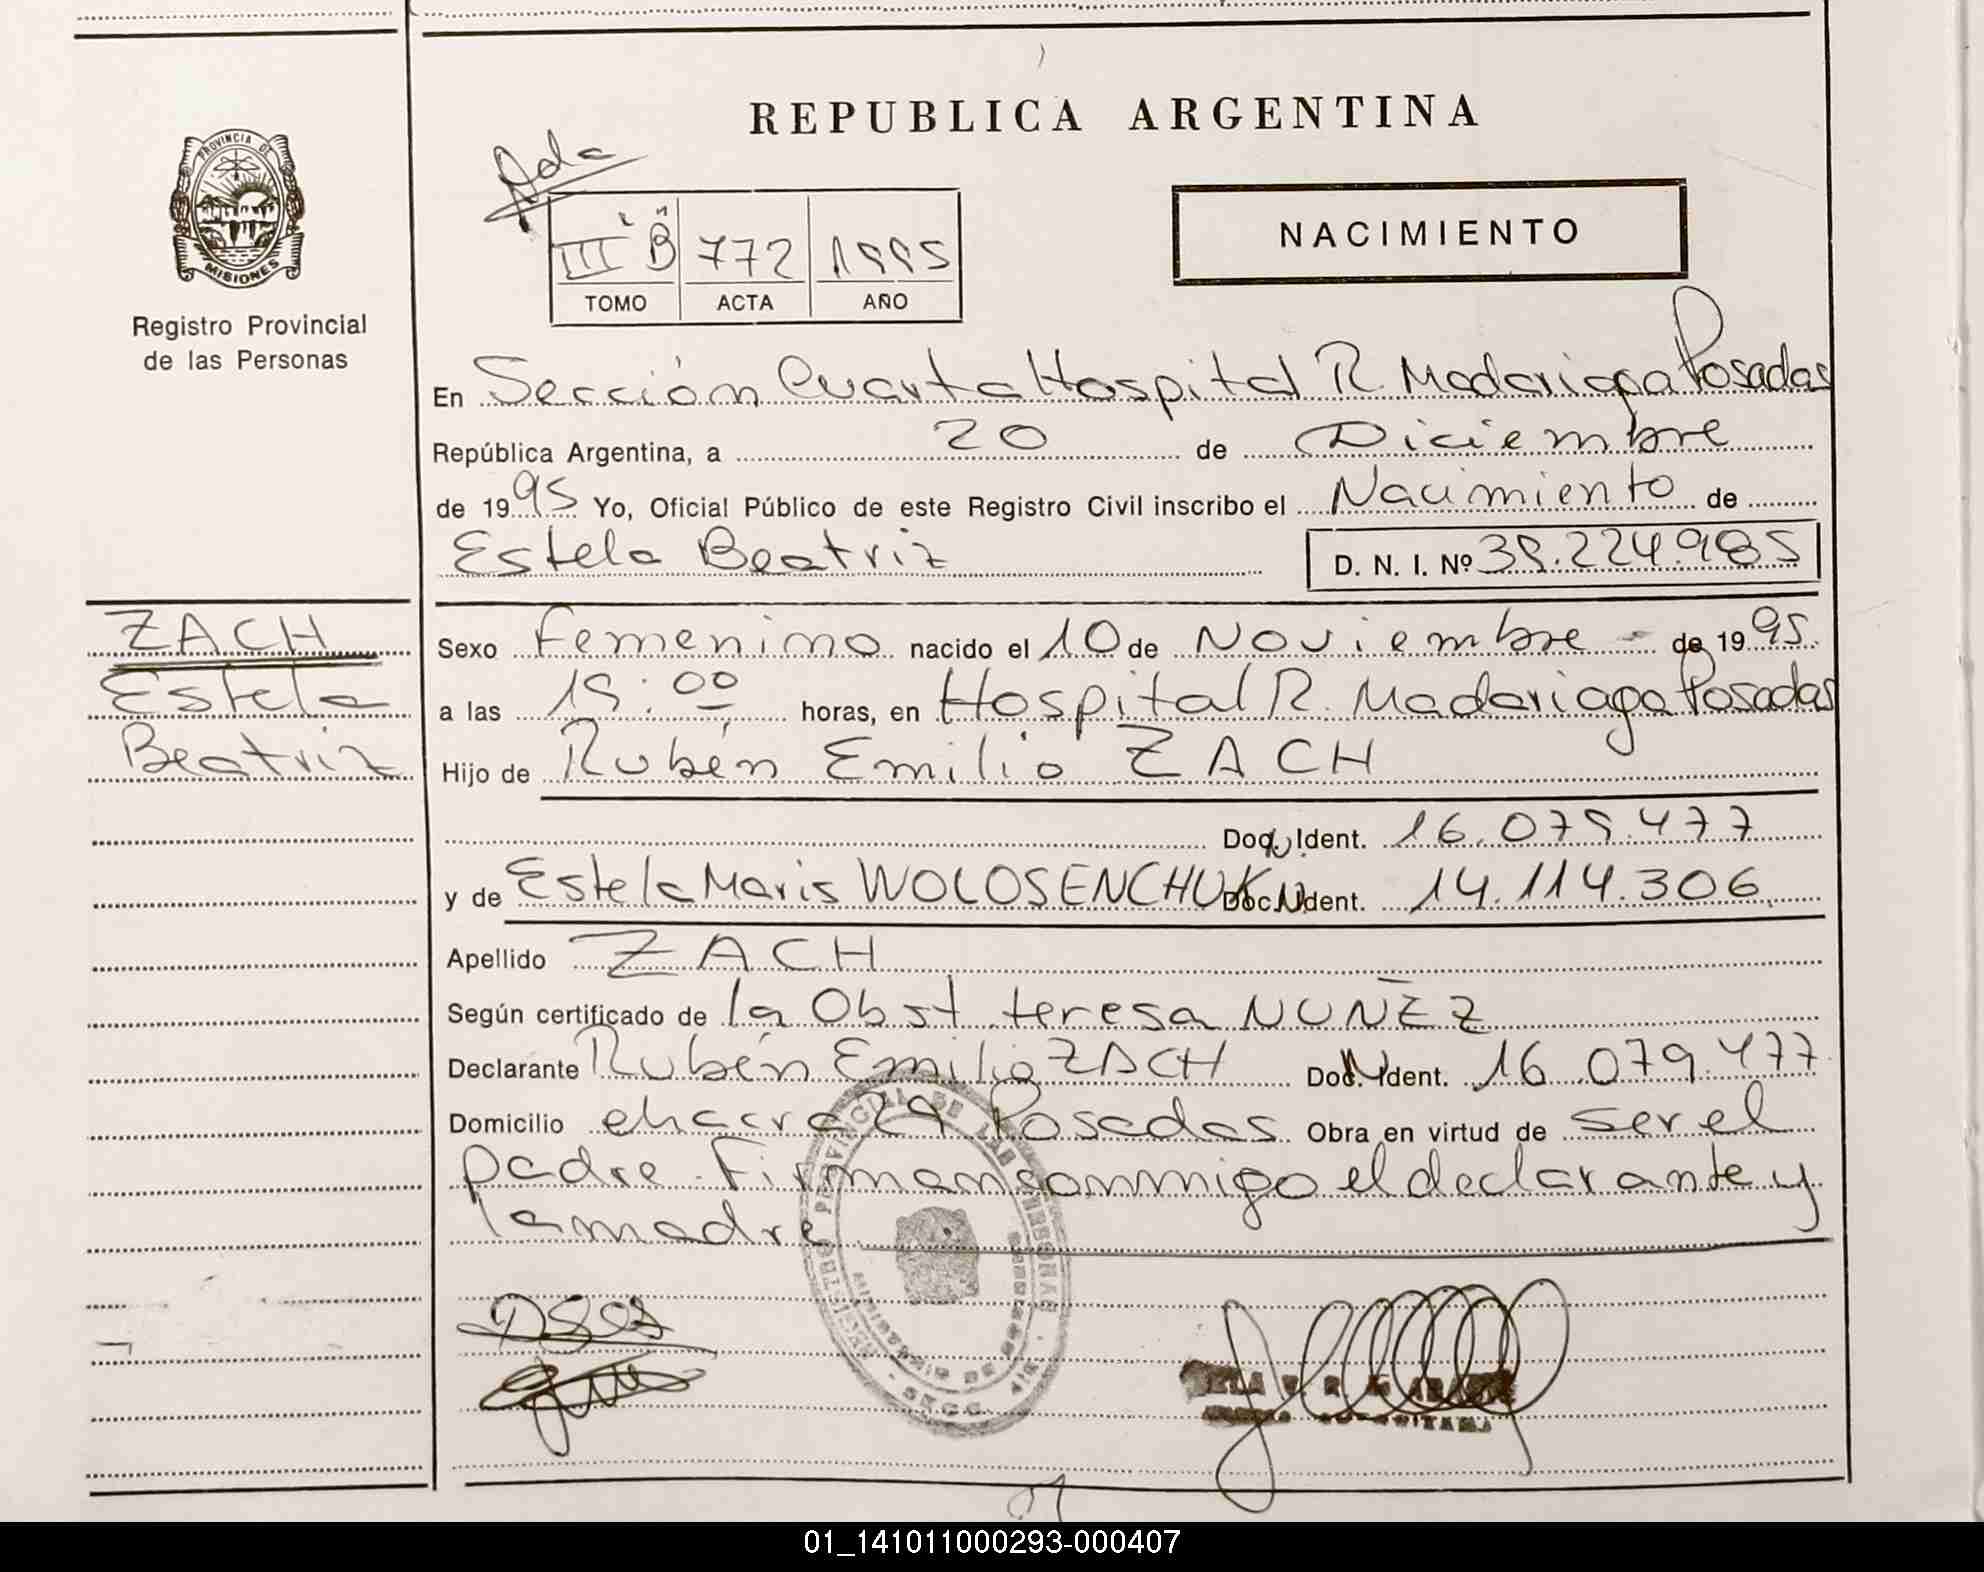 REPUBLICA ARGENTINA
PROVINCIA DE
MISIONES
Registro Provincial
de las Personas
Ada
III "B" 772 1995
TOMO ACTA AÑO
NACIMIENTO
En Sección Cuarta Hospital R. Madariaga Posadas
República Argentina, a 20 de Diciembre
de 1995 Yo, Oficial Público de este Registro Civil inscribo el Nacimiento de
Estela Beatriz D. N. I. Nº 39.224.985
ZACH
Estela
Beatriz
Sexo Femenino nacido el 10 de Noviembre - de 1995.
a las 19:00 horas, en Hospital R. Madariaga Posadas
Hijo de Rubén Emilio ZACH
Doc. Ident. 16.079.477
y de Estela Maris WOLOSENCHUK Doc. Ident. 14.114.306
Apellido ZACH
Según certificado de la Obst teresa NUÑEZ
Declarante Rubén Emilio ZACH Doc. Ident. 16.079.477
Domicilio chacra 29 Posadas Obra en virtud de ser el
padre. Firman conmmigo el declarante y
la madre
REGISTRO PROVINCIAL DE LAS PERSONAS
01_141011000293-000407